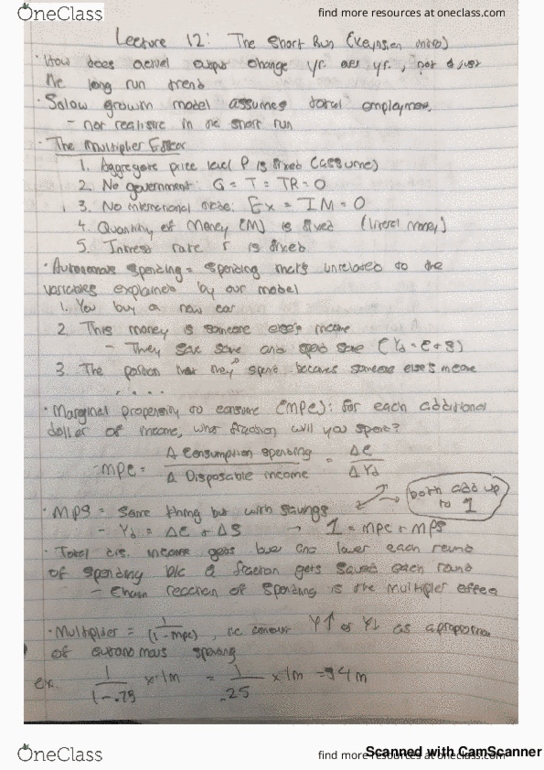 OneClass
find more resources at oneclass.com
Lecture 12: The Short Run (Keynsian
· How does actual output change yr. over yr., not over
the long run trend
· Solow growth model assumes total employment.
- not realistic in the short run
· The Multiplier Effect
1. Aggregate price level P is fixed (assume)
2. No government: G = T = TR = 0
3. No international trade: EX = IM = 0
4. Quantity of Money (M) is fixed (literal money)
5. Interest rate r is fixed
· Autonomous spending = spending that's unrelated to the
variables explained by our model
1. You buy a new car
2. This money is someone else's income
- They save some and spend some (Yd = C + S)
3. The portion that they spend becomes someone else's income
. . . .
· Marginal propensity to consume (MPC): for each additional
dollar of income, what fraction will you spend?
- MPC = Δ Consumption spending / Δ Disposable income = ΔC / ΔYd
both add up
to 1
· MPS = Same thing but with savings
- Yd = ΔC + ΔS → 1 = MPC + MPS
· Total dis. income gets lower and lower each round
of spending b/c a fraction gets saved each round
- Chain reaction of spending is the multiplier effect
· Multiplier = 1/(1 - mpc), Y↑ or Y↓ as a proportion
of autonomous spending
ex. 1/1-.75 x 1m = 1/.25 x 1m = $4m
OneClass
find more resources at oneclass.com
Scanned with CamScanner